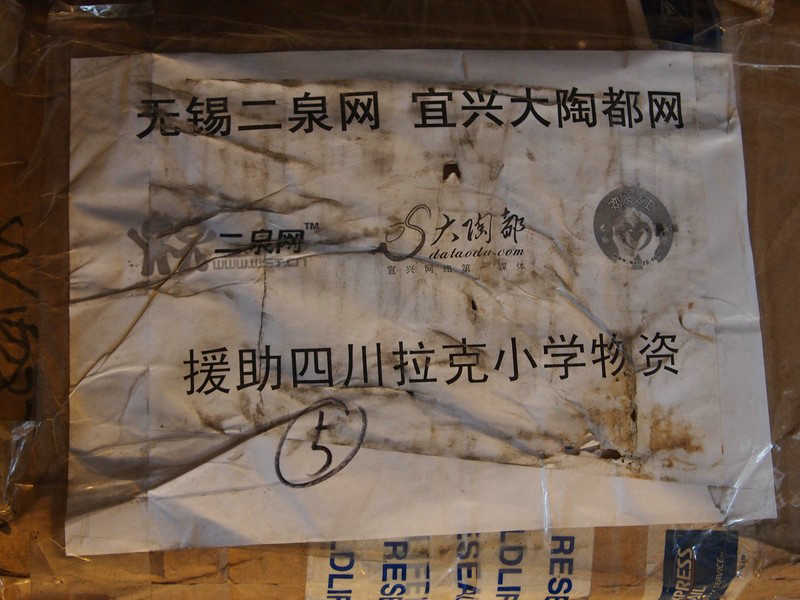 无锡二泉网 宜兴大陶都网
二泉网™
www.wst.cn
大陶都
dataodu.com
宜兴网络第一媒体
援助四川拉克小学物资
5
RESE
RESEAC
PRESS